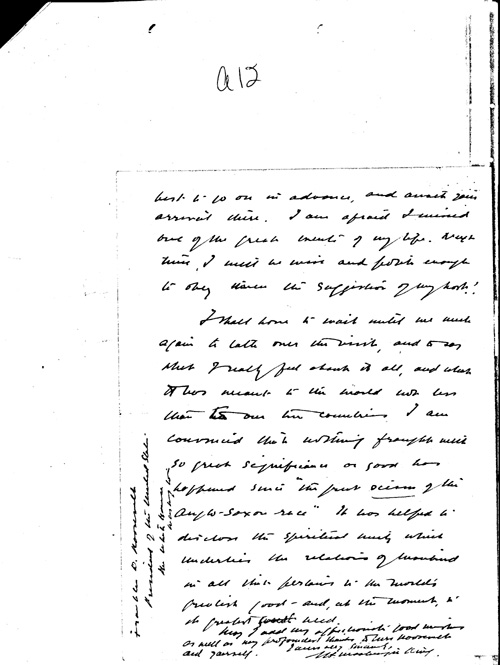 A12
best to go on in advance, and await your
arrival there. I am afraid I missed
one of the great events of my life. Next
time, I will be wise and polite enough
to obey the suggestion of my host!
I shall have to wait until we meet
again to talk over the visit, and to say
what I really feel about it all, and what
it has meant to the world not less
than to our two countries I am
convinced that nothing fraught with
so great significance or good has
happened since "the great scism of the
Anglo-Saxon race" It has helped to
disclose the spiritual unity which
underlies the relations of mankind
in all that pertains to the world's
greatest good - and, at the moment, to
its greatest need.
May I add my affectionate good wishes
as well as my profoundest thanks to Mrs Roosevelt
and yourself. Yours very sincerely
Franklin D. Roosevelt
President of the United States
The White House
Washington